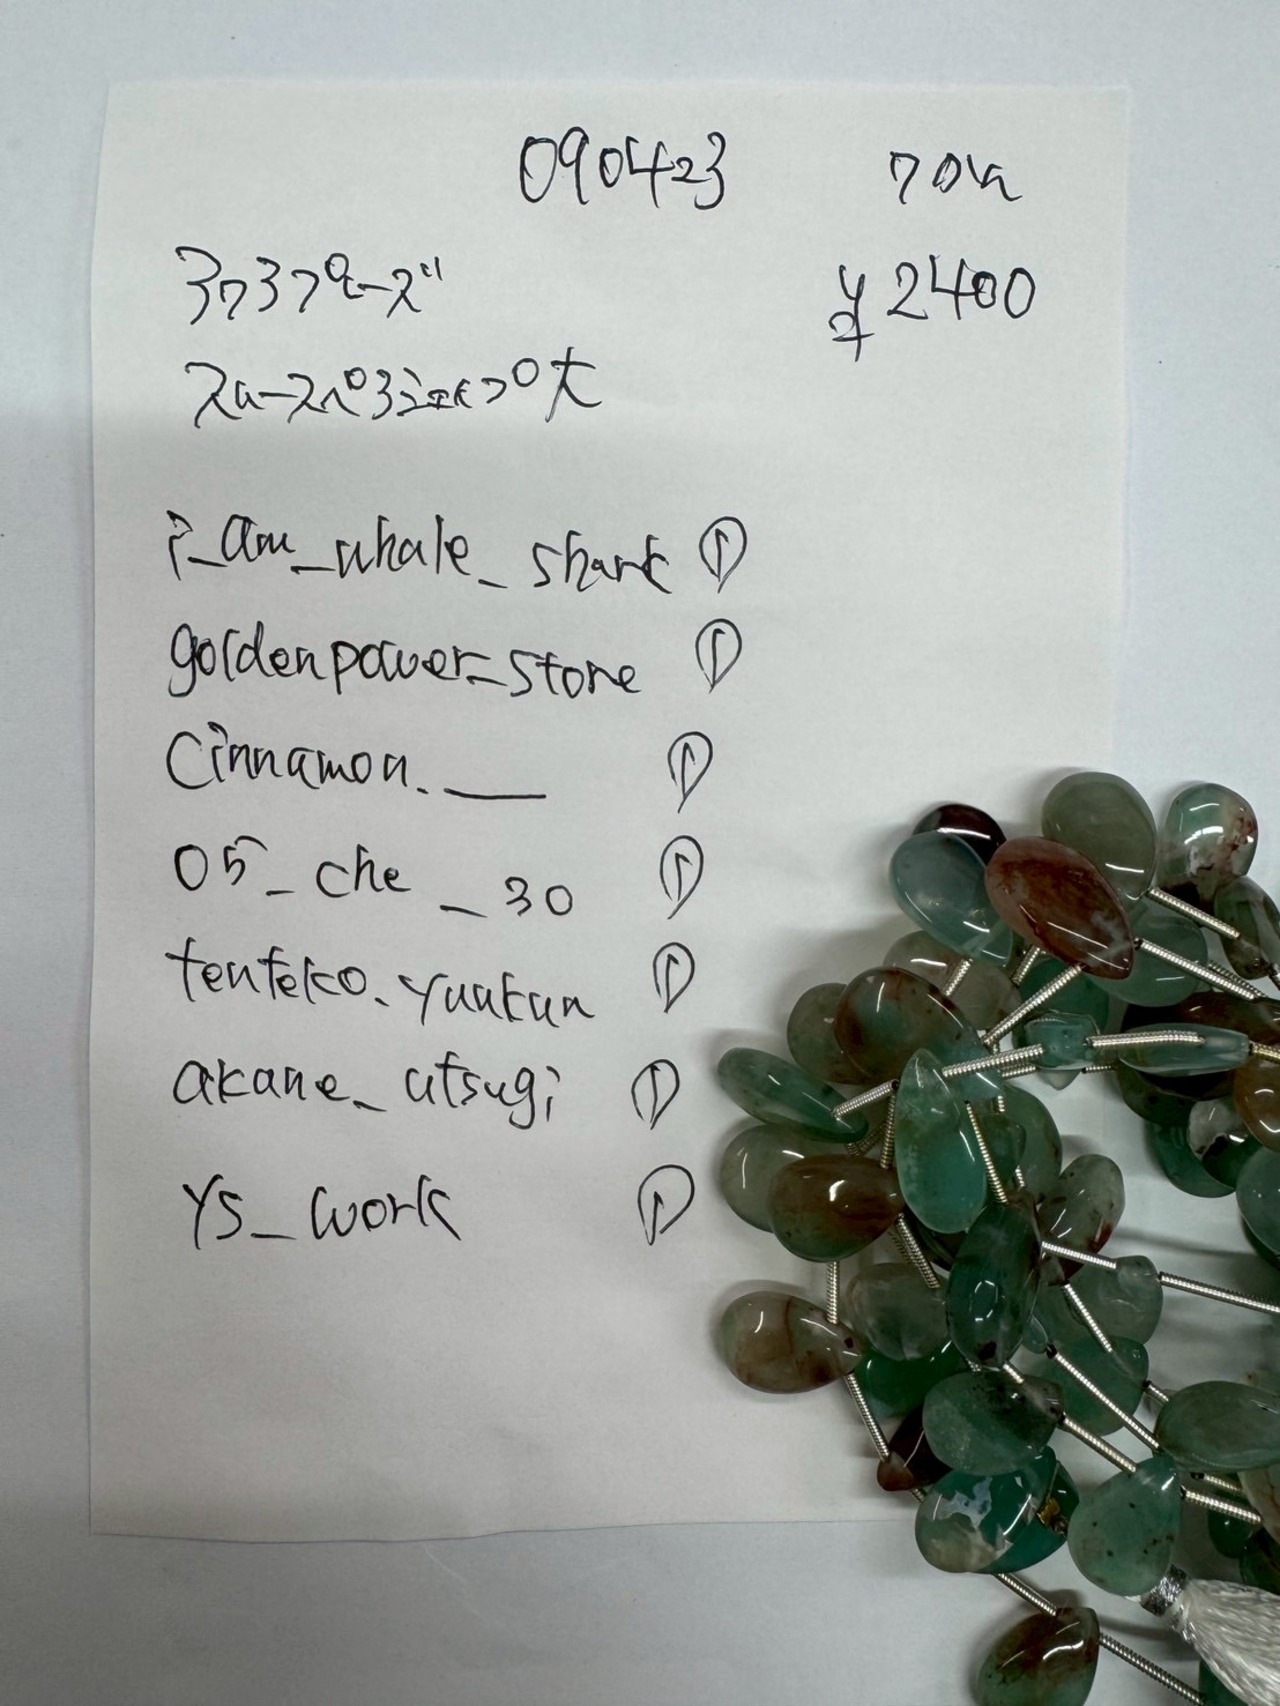 090423 701a
ヨウヨウクォーズ
¥2400
スムースペアシェイプ大
i_am_whale_shark ①
goldenpower_stone ①
Cinnamon.__ ①
05_che_30 ①
tenteko.yuukun ①
akane_utsugi ①
ys_work ①